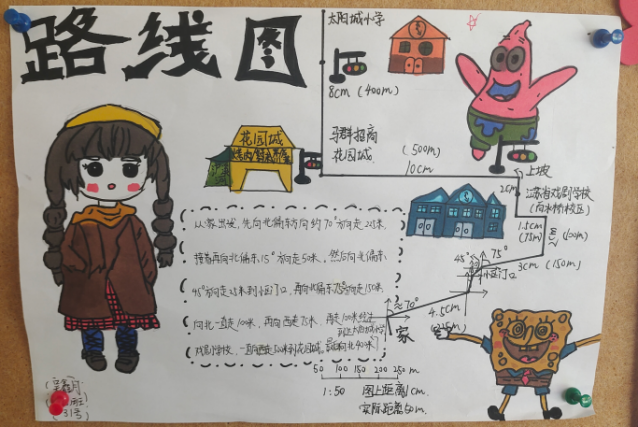 路线图
太阳城小学
8cm (400m)
花园城
马群招商
花园城
(500m)
10cm
上坡
2cm
江苏省戏剧学校
1.5cm
(75m)
(100m)
45°
75°
小区门口
3cm (150m)
≈70°
4.5cm
家
从家出发，先向北偏东方向约70°方向走225米，
接着再向北偏东15°方向走50米，然后向北偏东
45°方向走25米到小区门口，再向北偏东75°方向走150米，
向北一直走100米，再向西走75米，再走100米经过
戏剧学校，一直向西走500米到花园城，
50 100 150 200 250 m
1:50 图上距离1cm
实际距离50m.
31号